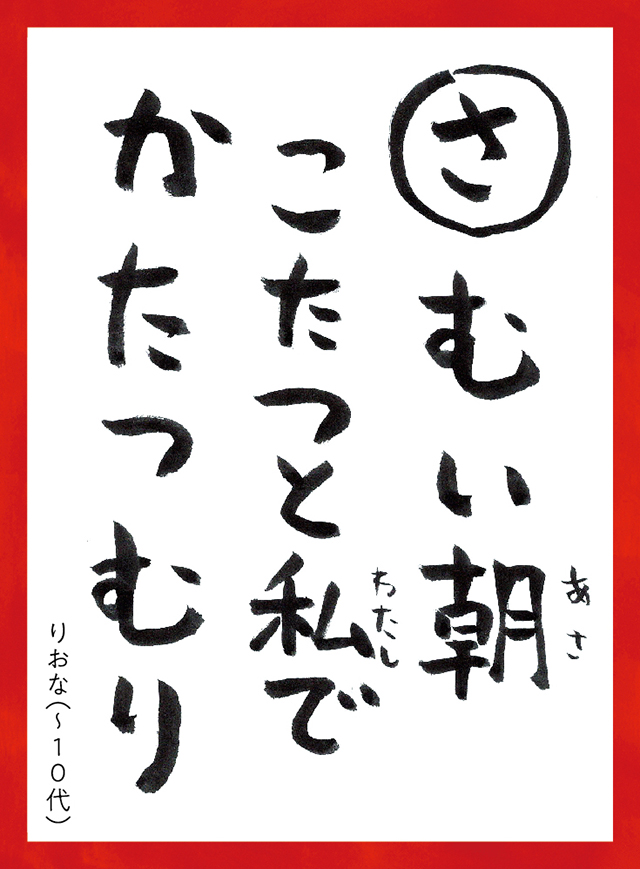 さむい朝
あさ
こたつと私で
わたし
かたつむり
りおな(〜10代)